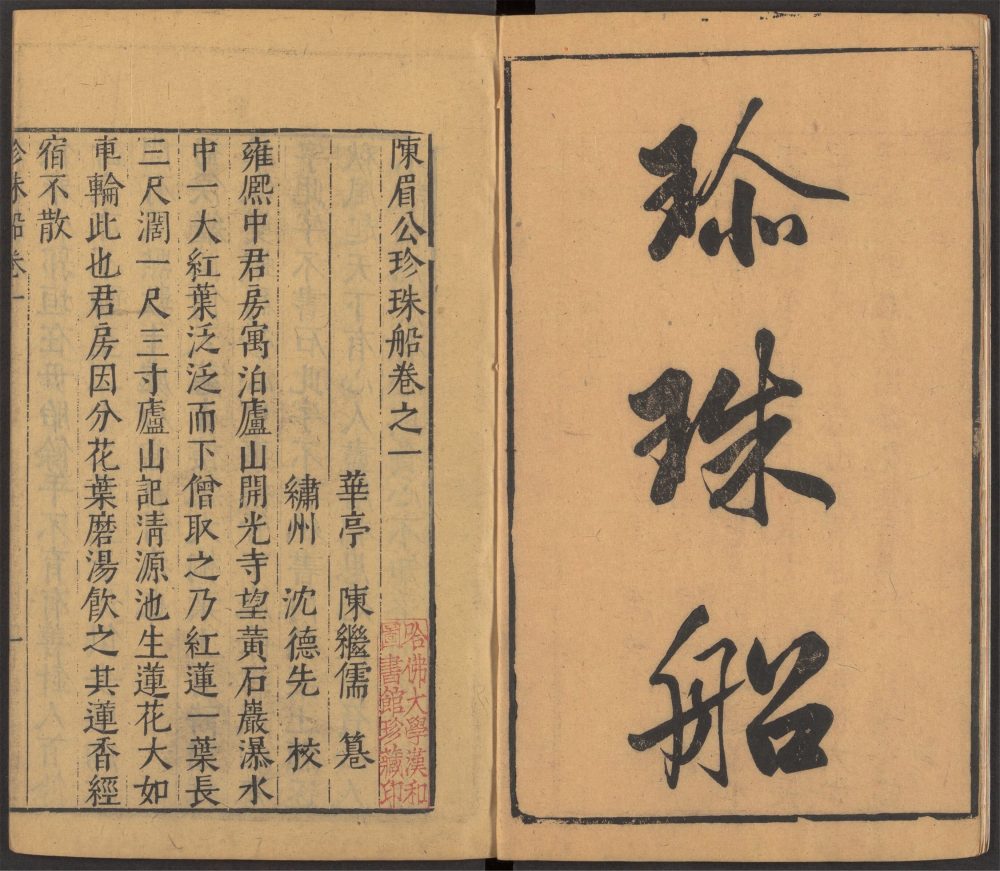 珎珠船
陳眉公珍珠船卷之一
華亭 陳繼儒 篹
繡州 沈德先 校
哈佛大學漢和
圖書館珍藏印
雍熈中君房寓泊廬山開光寺望黃石巖瀑水
中一大紅葉泛泛而下僧取之乃紅蓮一葉長
三尺濶一尺三寸廬山記清源池生蓮花大如
車輪此也君房因分花葉磨湯飲之其蓮香經
宿不散
珍珠船卷一 一